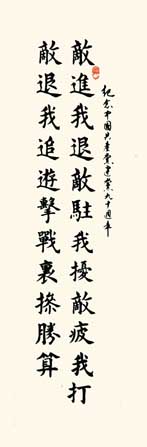 紀念中国共產黨建黨九十週年
敵進我退敵駐我擾敵疲我打
敵退我追遊擊戰裏操勝算